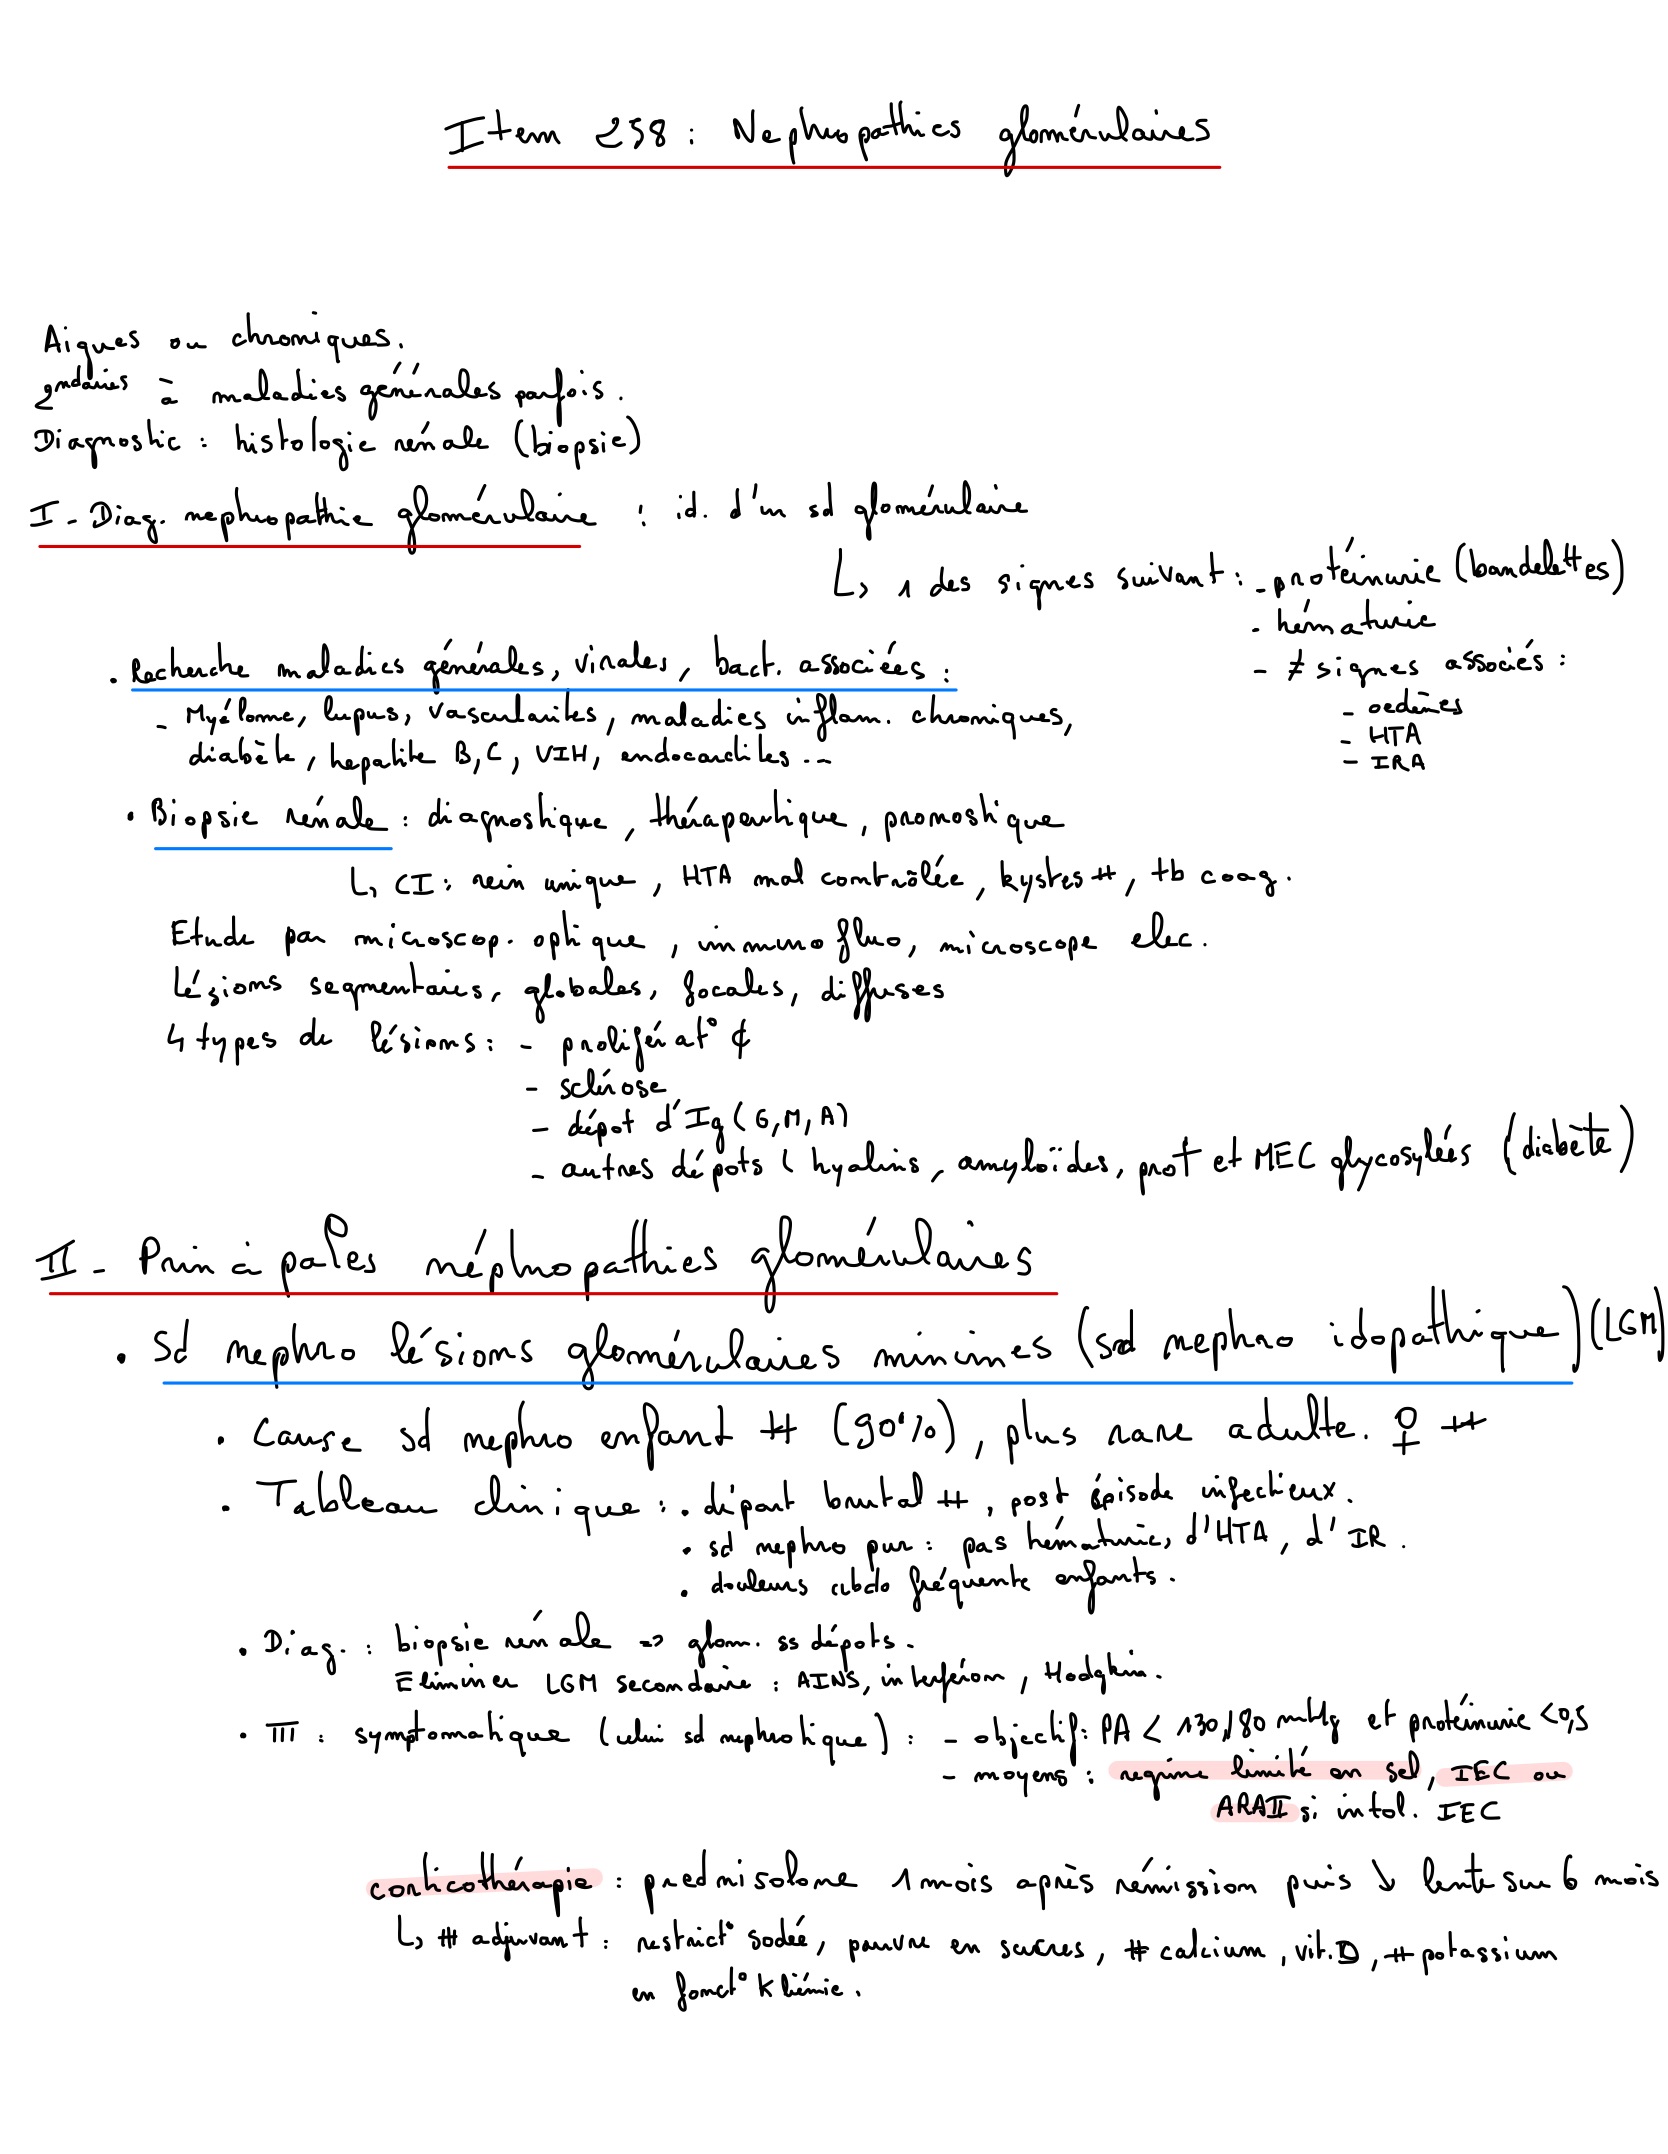 Item 258 : Nephropathies glomérulaires
Aigues ou chroniques.
2ndaires à maladies générales parfois.
Diagnostic : histologie rénale (biopsie)
I - Diag. nephropathie glomérulaire : id. d'un sd glomérulaire
↳ 1 des signes suivant : - protéinurie (bandelettes)
- hématurie
- ≠ signes associés :
- oedèmes
- HTA
- IRA
• Recherche maladies générales, virales, bact. associées :
- Myélome, lupus, vascularites, maladies inflam. chroniques,
diabète, hepatite B, C, VIH, endocardites...
• Biopsie rénale : diagnostique, thérapeutique, pronostique
↳ CI : rein unique, HTA mal contrôlée, kystes #, tb coag.
Etude par microscop. optique, immunofluo, microscope elec.
Lésions segmentaires, globales, focales, diffuses
4 types de lésions : - proliférat° ¢
- sclérose
- dépot d'Ig (G, M, A)
- autres dépots (hyalins, amyloïdes, prot et MEC glycosylées (diabète)
II - Principales néphropathies glomérulaires
• Sd nephro lésions glomérulaires minimes (sd nephro idopathique) (LGM)
• Cause sd nephro enfant # (90%), plus rare adulte. ♀ #
• Tableau clinique : • départ brutal #, post épisode infectieux.
• sd nephro pur : pas hématurie, d'HTA, d'IR.
• douleurs abdo fréquente enfants.
• Diag. : biopsie rénale => glom. ss dépots.
Eliminer LGM secondaire : AINS, interféron, Hodgkin.
• TTT : symptomatique (celui sd nephrotique) : - objectif : PA < 130/80 mmHg et protéinurie <0,5
- moyens : regime limité en sel, IEC ou
ARAII si intol. IEC
corticothérapie : prednisolone 1 mois après rémission puis ↘ lente sur 6 mois
↳ ttt adjuvant : restrict° sodée, pauvre en sucres, # calcium, vit. D, # potassium
en fonct° Kliémie.